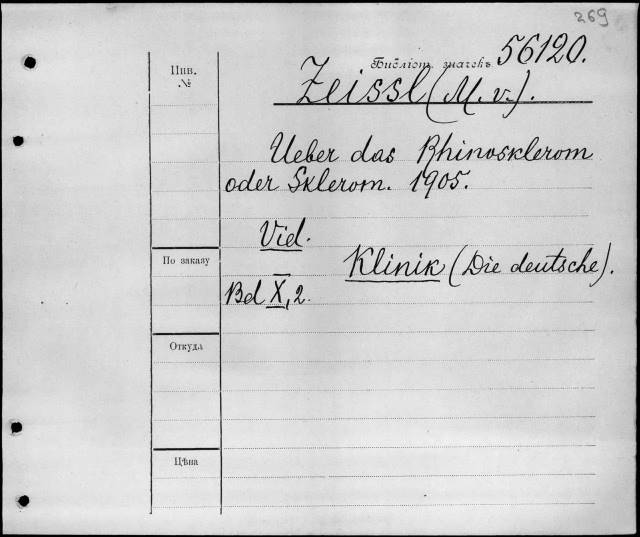 269
Инв.
№
Библіот. значекъ 56120.
Zeissl (M. v.).
Ueber das Rhinosklerom
oder Sklerom. 1905.
Vid.
По заказу
Klinik (Die deutsche).
Bd X, 2.
Откуда
Цѣна